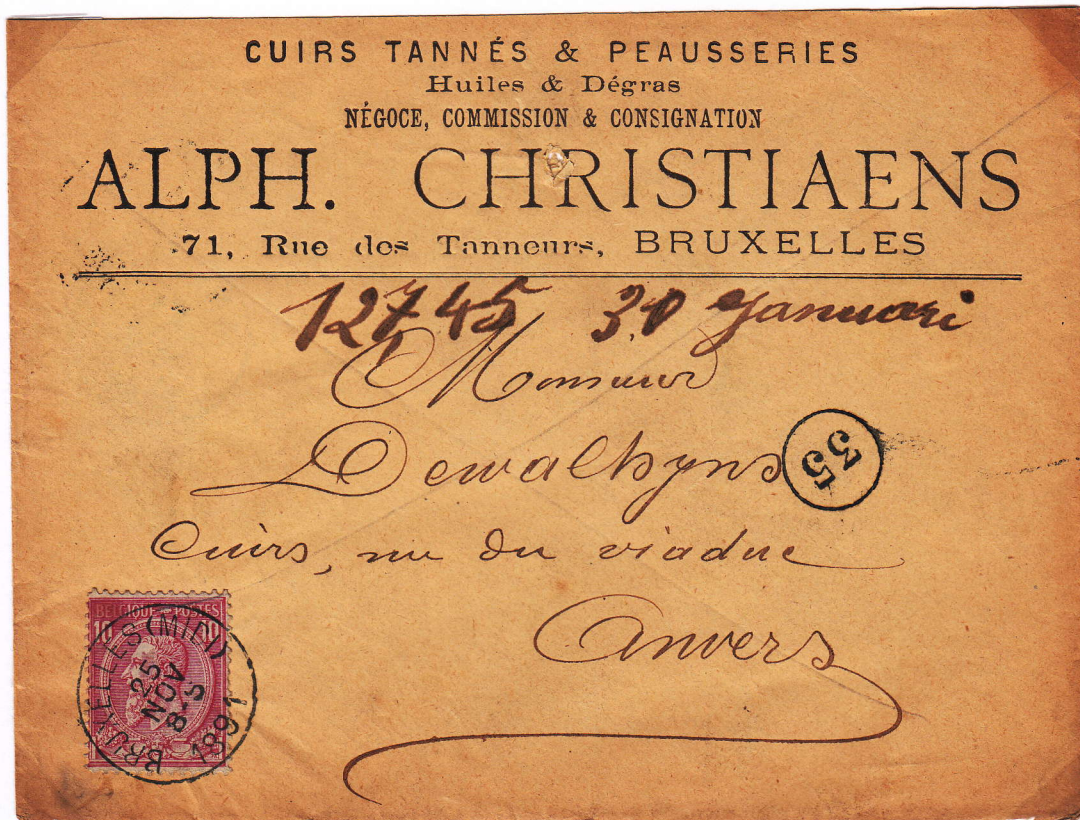 CUIRS TANNÉS & PEAUSSERIES
Huiles & Dégras
NÉGOCE, COMMISSION & CONSIGNATION
ALPH. CHRISTIAENS
71, Rue des Tanneurs, BRUXELLES
12,745 30 januari
Monsieur
Dewalhyns
35
Cuirs, rue du viaduc
Anvers
BELGIQUE POSTES
10 10
BRUXELLES (MIDI)
25
NOV
8-S
1891